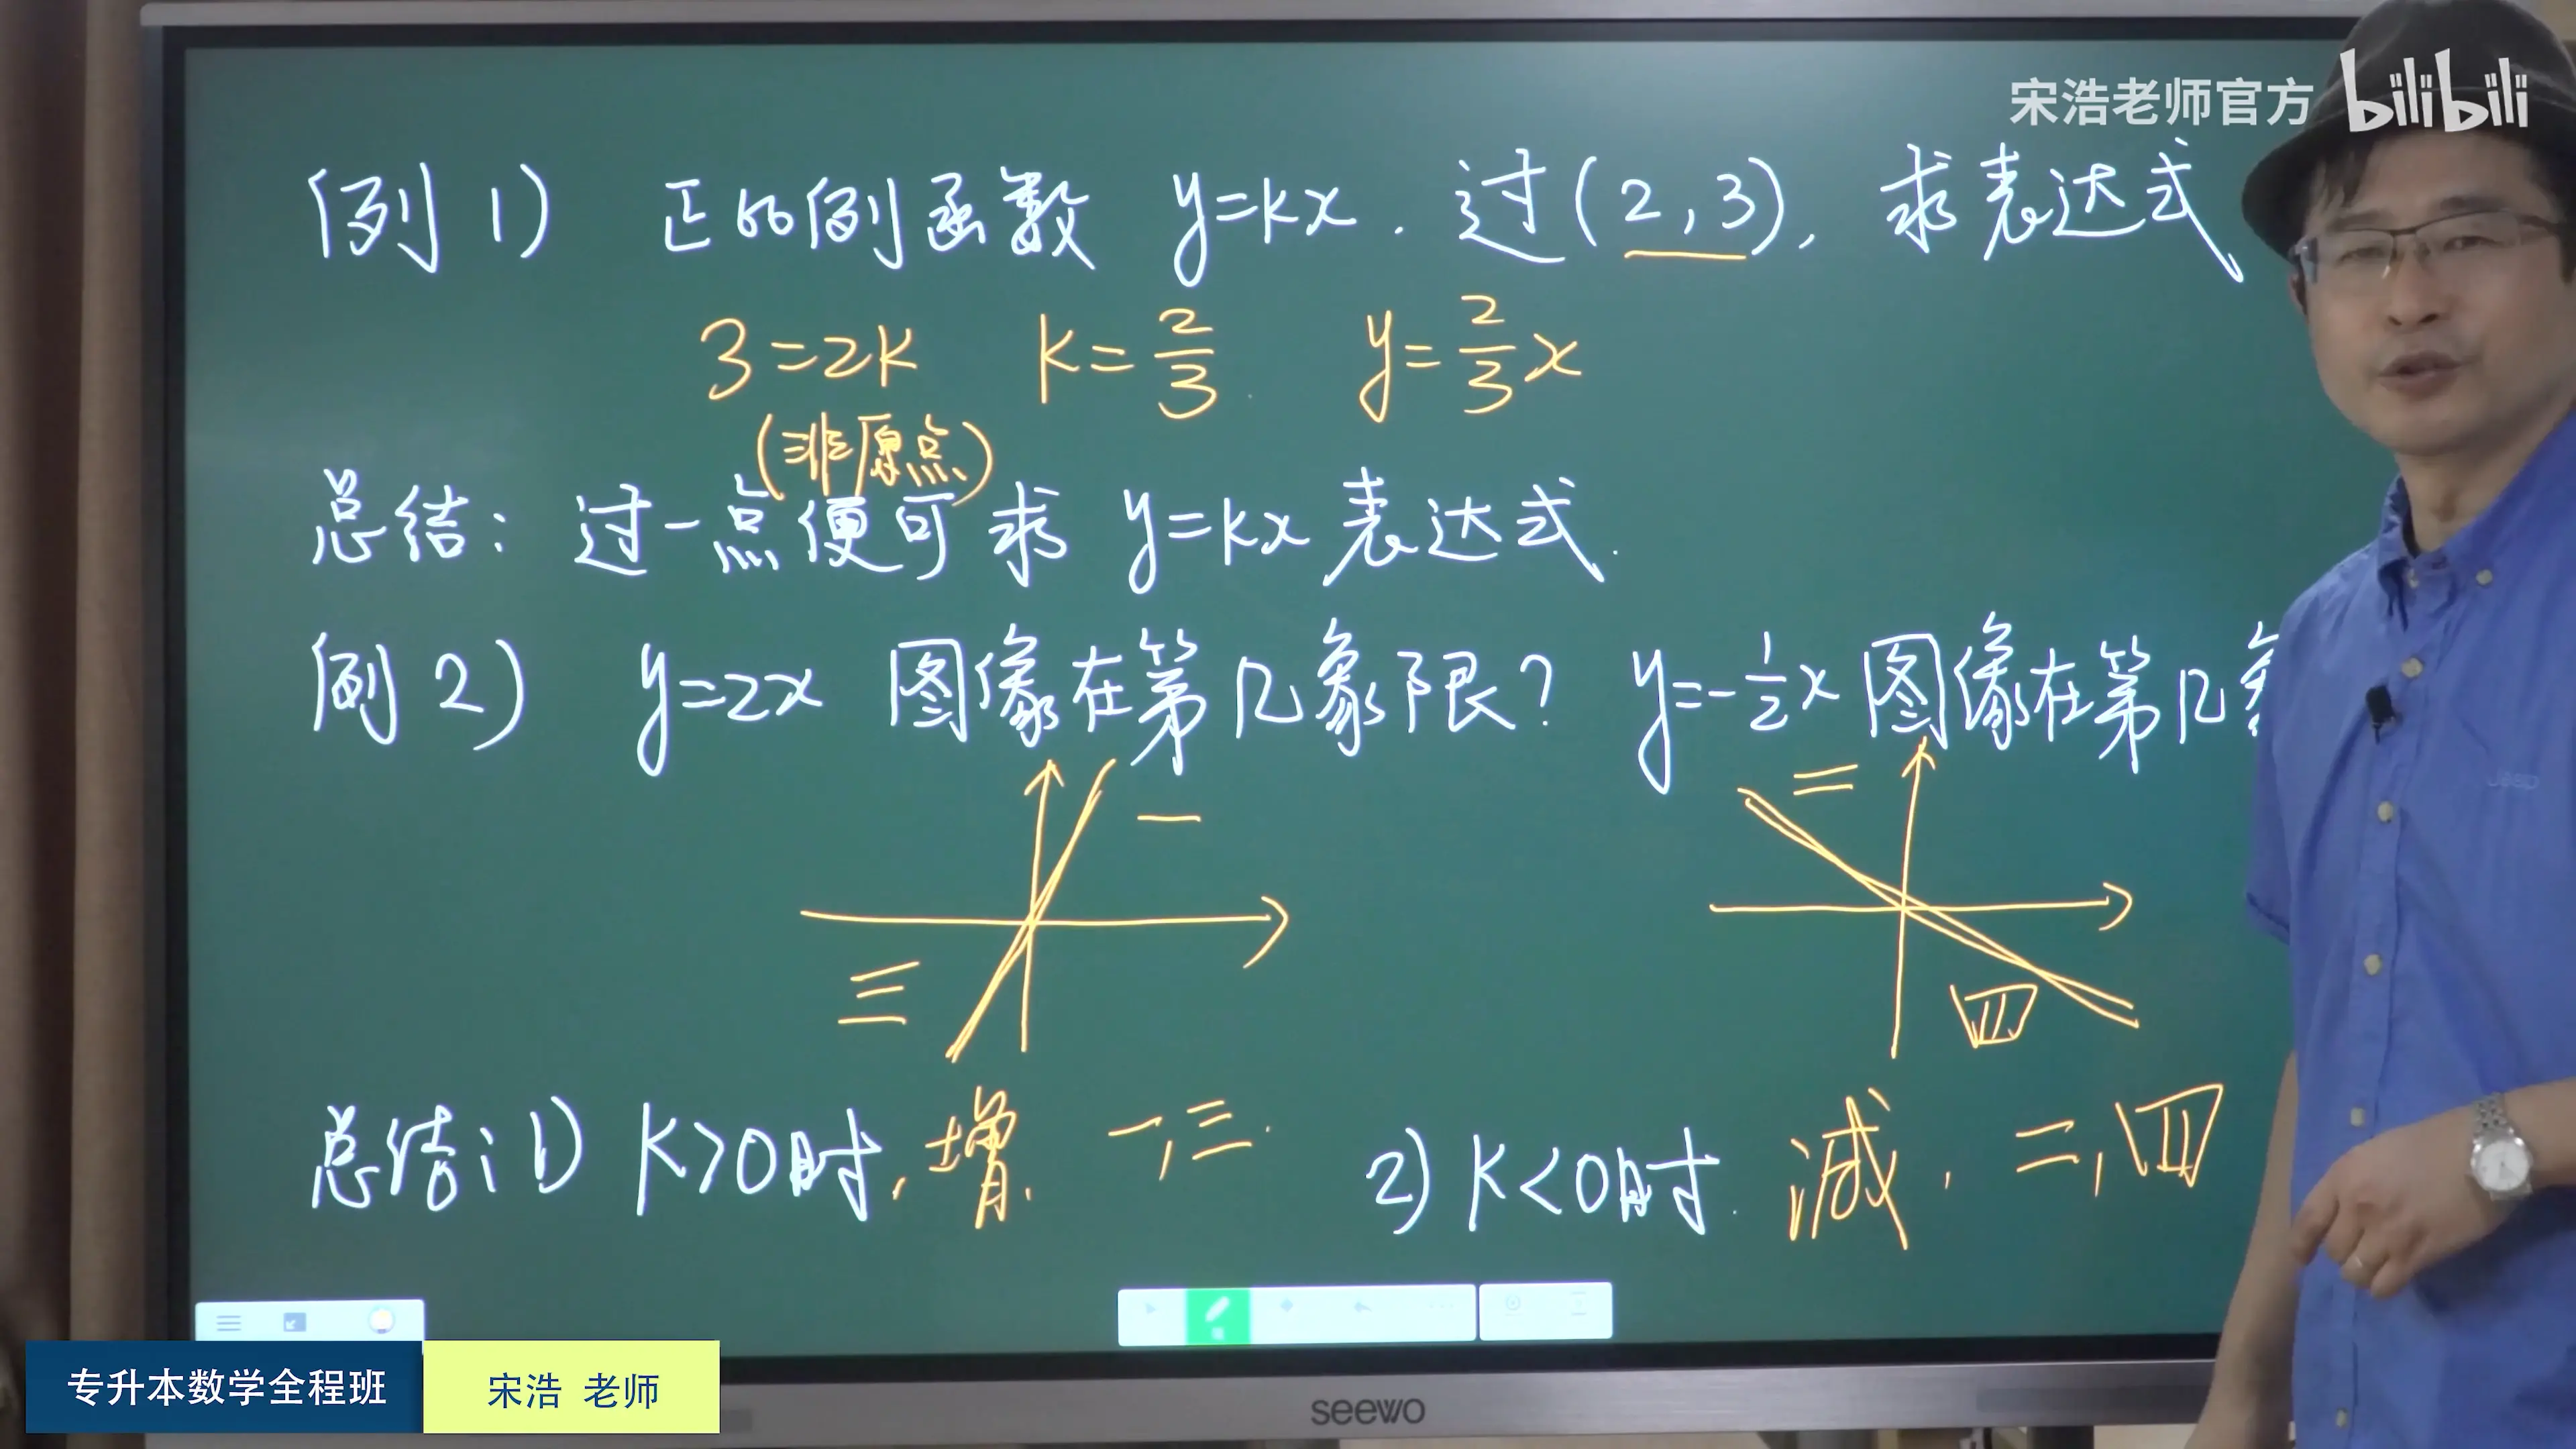 宋浩老师官方 bilibili
例 1) 正比例函数 y=kx. 过(2,3), 求表达式
3=2k k=2/3. y=2/3x
(非原点)
总结: 过一点便可求 y=kx 表达式.
例 2) y=2x 图像在第几象限? y=-1/2x 图像在第几象
一 二
三 四
总结: 1) k>0时, 增. 一,三. 2) k<0时. 减, 二,四
专升本数学全程班 宋浩 老师
seewo